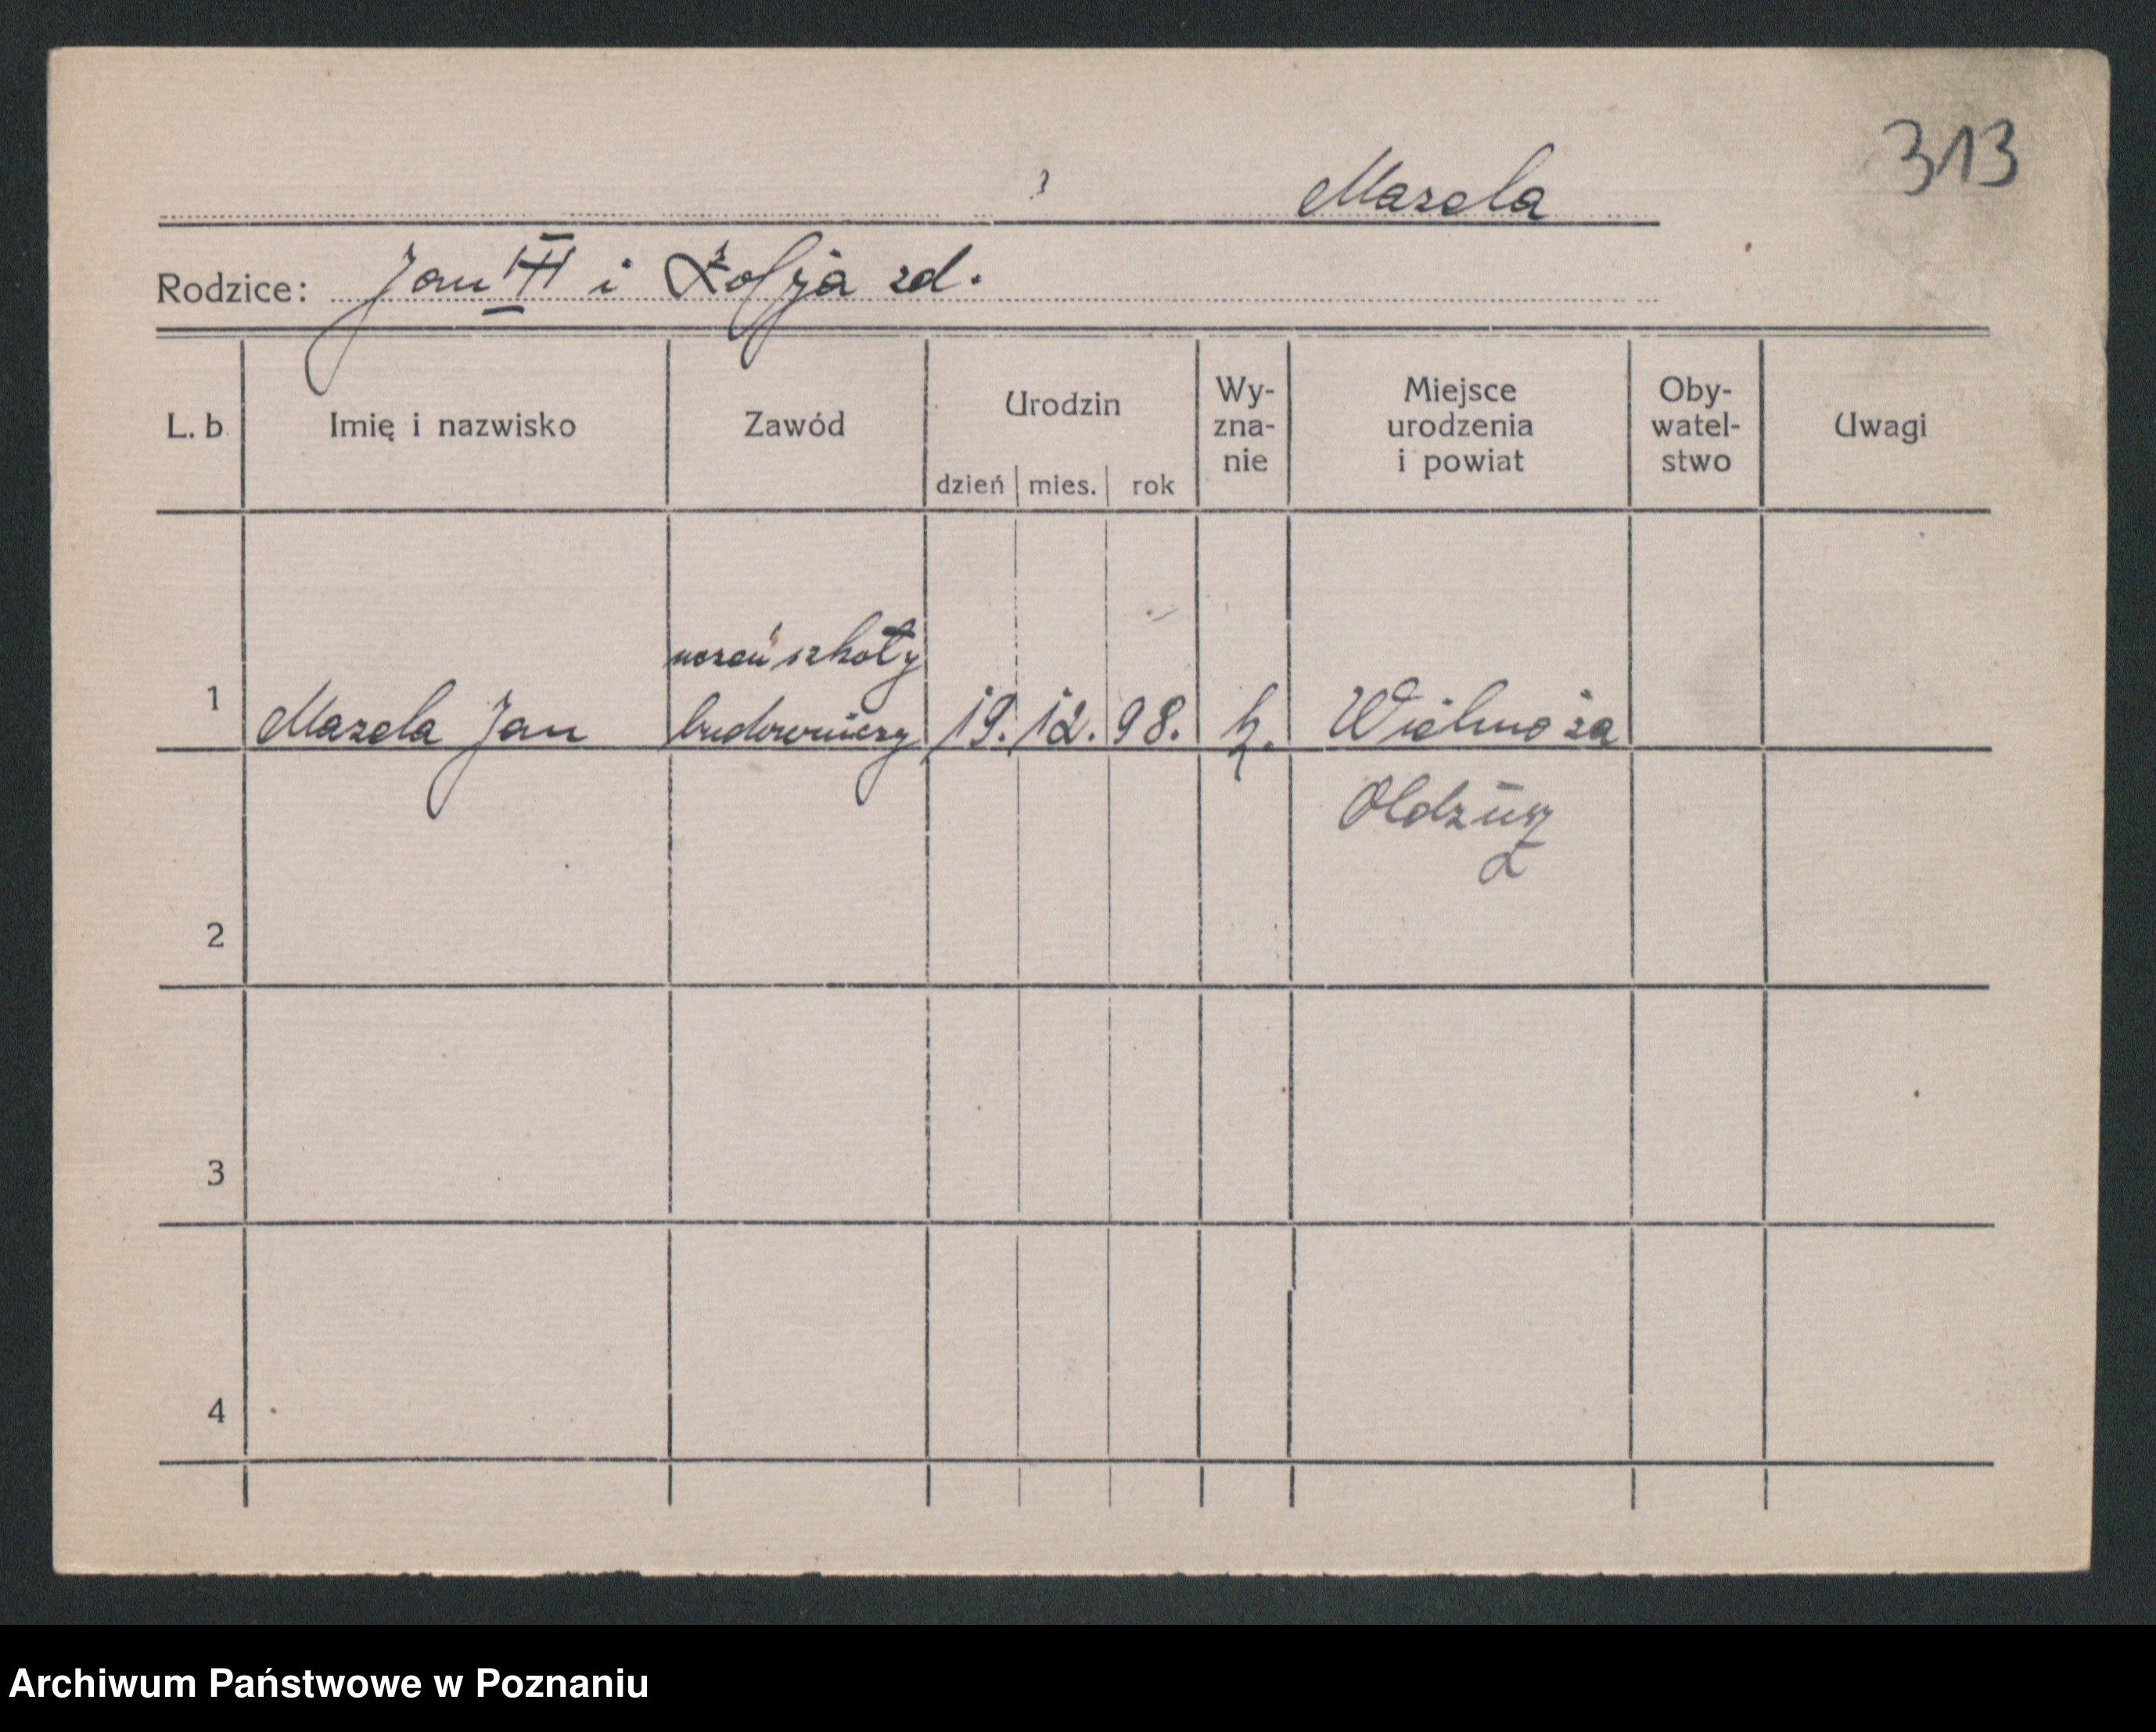 313
Mazela
Rodzice: Jan III i Zofja zd.
L. b. Imię i nazwisko Zawód Urodzin dzień mies. rok Wy-zna-nie Miejsce urodzenia i powiat Oby-watel-stwo Uwagi
uczeń szkoły
1 Mazela Jan budowniczy 19. 12. 98. k. Wielmoża
2
3
4
Archiwum Państwowe w Poznaniu